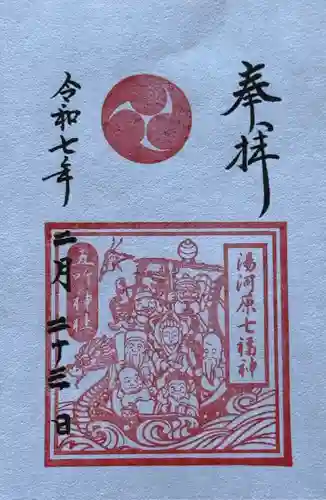 奉拝
令和七年
二月二十三日
湯河原七福神
五所神社